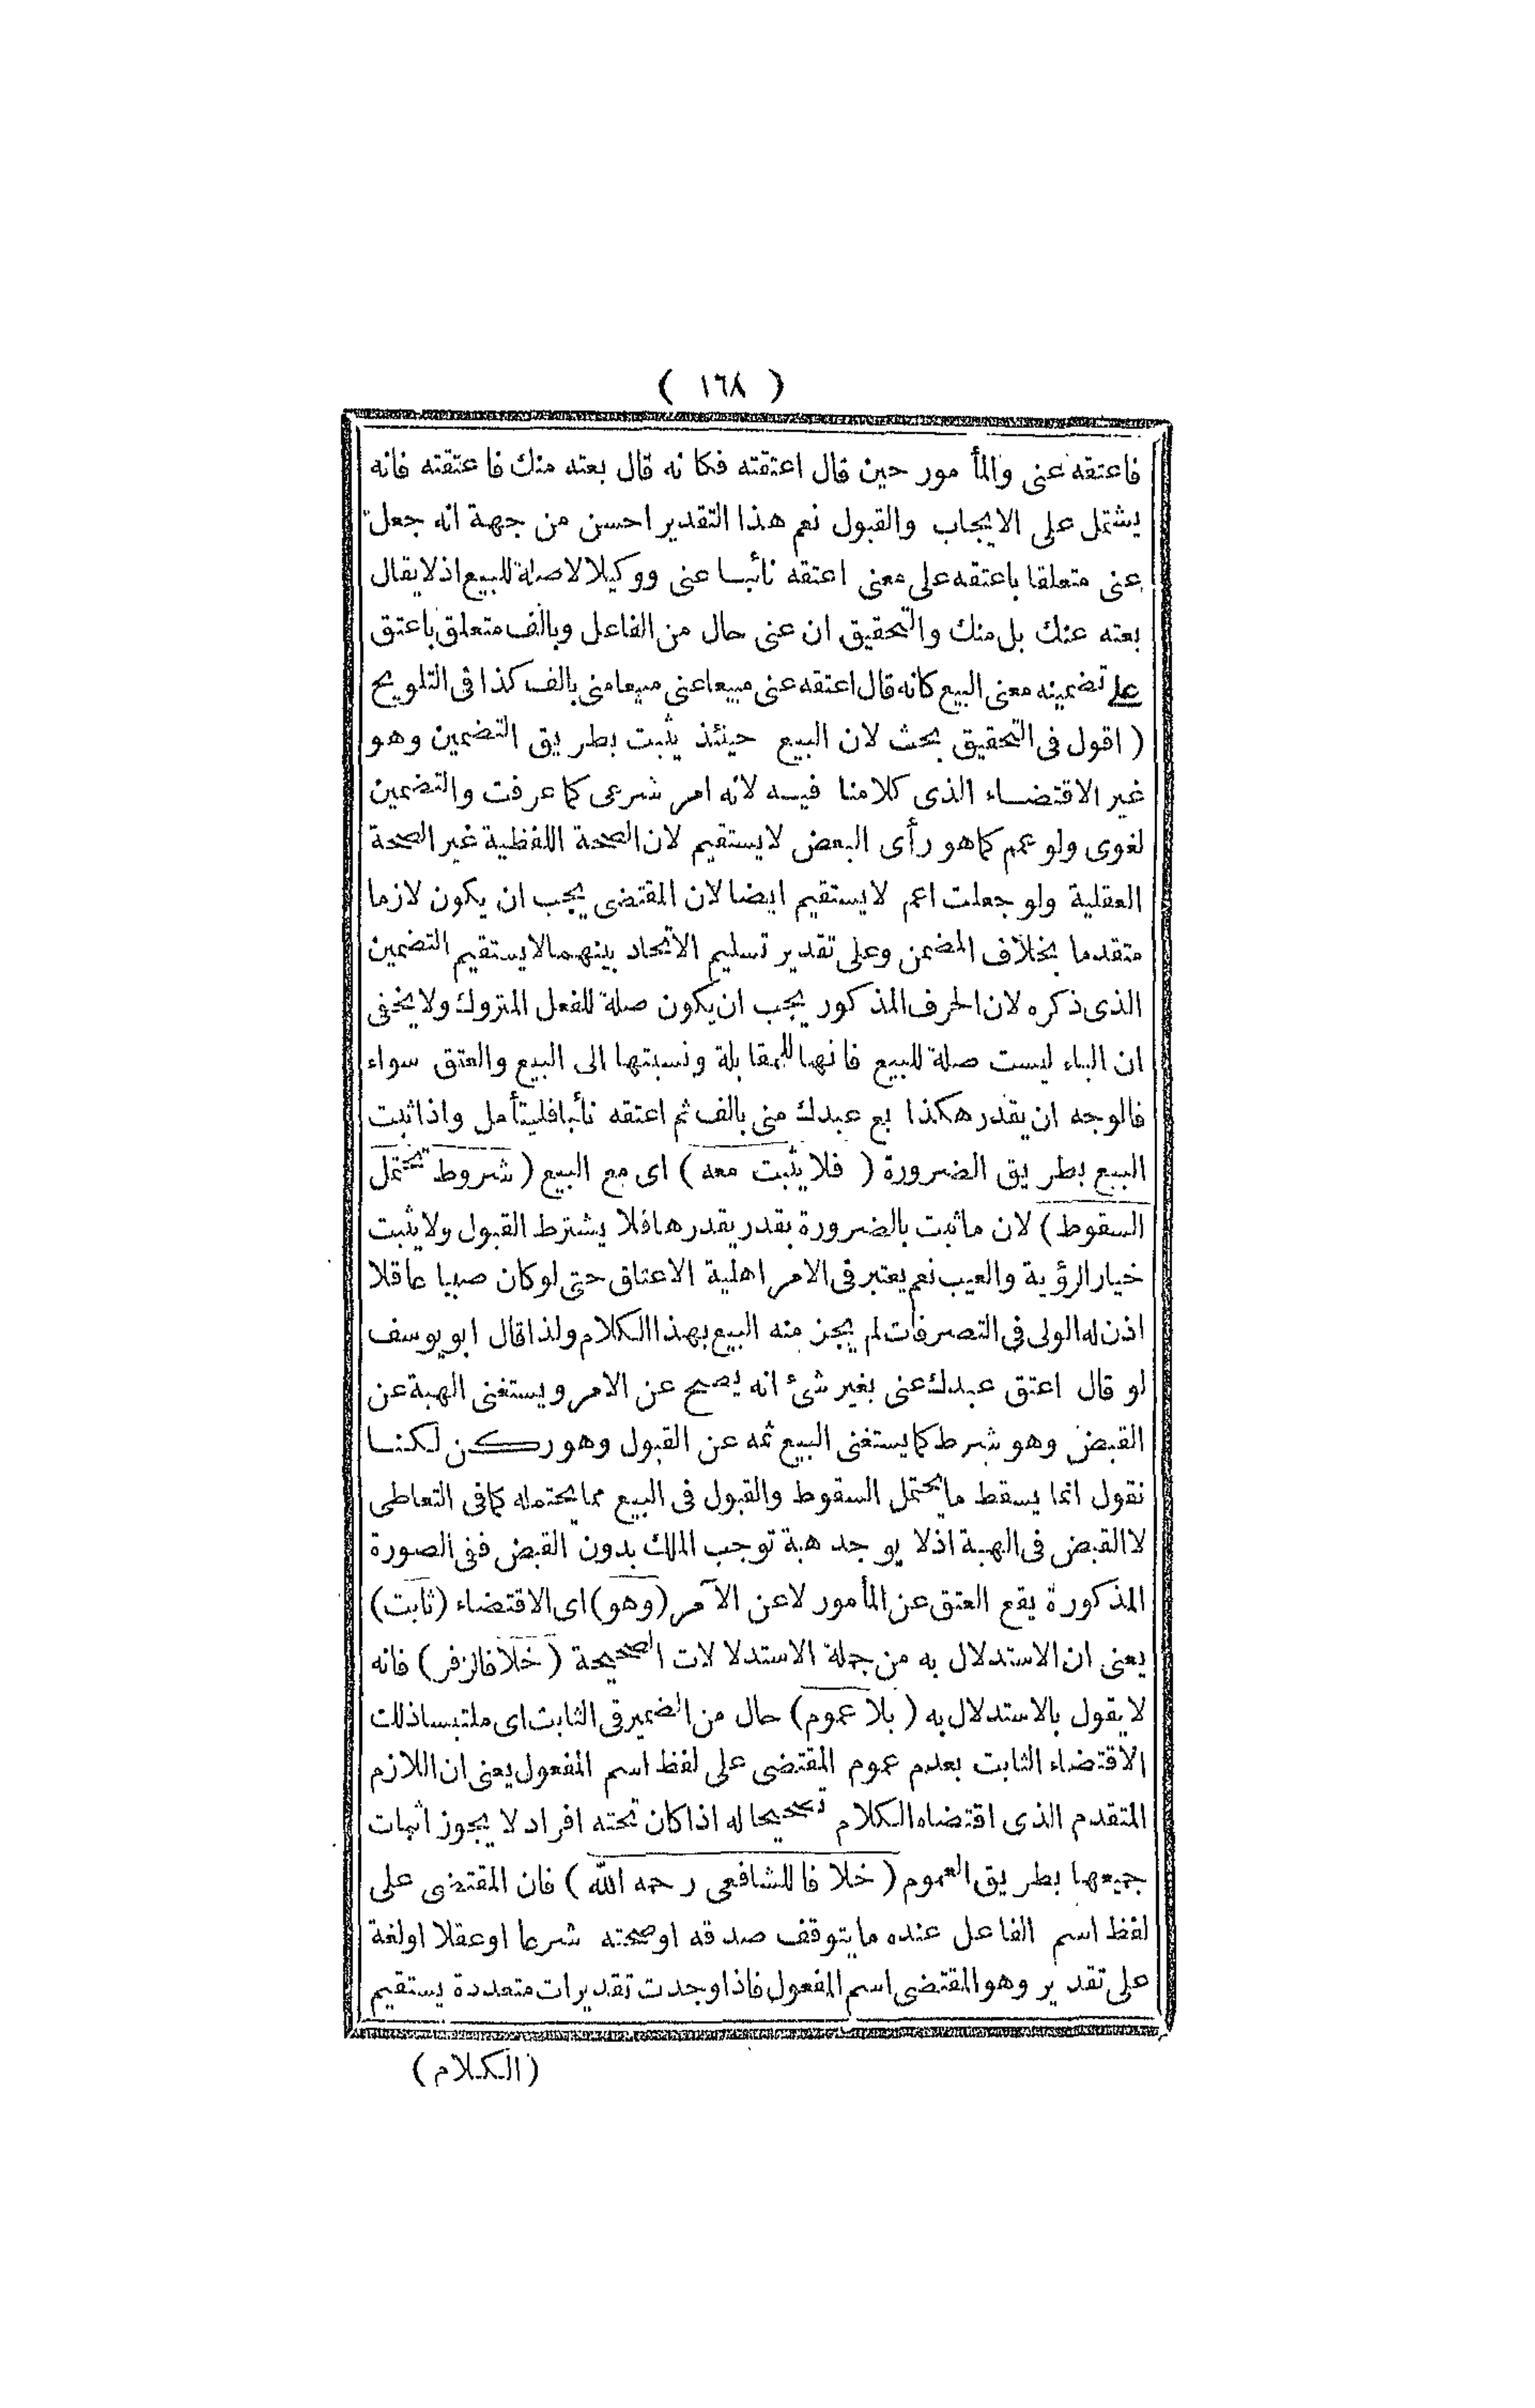 ( ١٦٨ )
فاعتقه عنى والمأ مور حين قال اعتقته فكا نه قال بعته منك فا عتقته فانه
يشتمل على الايجاب والقبول نعم هذا التقدير احسن من جهة انه جعل
عنى متعلقا باعتقه على معنى اعتقه نائبا عنى ووكيلا لا صلة للبيع اذ لا يقال
بعته عنك بل منك والتحقيق ان عنى حال من الفاعل وبالف متعلق باعتق
على تضمينه معنى البيع كانه قال اعتقه عنى مبيعا عنى مبيعا منى بالف كذا فى التلويح
( اقول فى التحقيق بحث لان البيع حينئذ يثبت بطر يق التضمين وهو
غير الاقتضاء الذى كلامنا فيه لانه امر شرعى كما عرفت والتضمين
لغوى ولو عمم كما هو رأى البعض لا يستقيم لان الصحة اللفظية غير الصحة
العقلية ولو جعلت اعم لا يستقيم ايضا لان المقتضى يجب ان يكون لازما
متقدما بخلاف المضمن وعلى تقدير تسليم الاتحاد بينهما لا يستقيم التضمين
الذى ذكره لان الحرف المذ كور يجب ان يكون صلة للفعل المتروك ولا يخفى
ان الباء ليست صلة للبيع فا نها للمقا بلة ونسبتها الى البيع والعتق سواء
فالوجه ان يقدر هكذا بع عبدك منى بالف ثم اعتقه نائبا فليتأمل واذا ثبت
البيع بطر يق الضرورة ( فلا يثبت معه ) اى مع البيع ( شروط تحتمل
السقوط ) لان ما ثبت بالضرورة بقدر يقدرها فلا يشترط القبول ولا يثبت
خيار الرؤية والعيب نعم يعتبر فى الامر اهلية الاعتاق حتى لو كان صبيا عاقلا
اذن له الولى فى التصرفات لم يجز منه البيع بهذا الكلام ولذا قال ابو يوسف
لو قال اعتق عبدك عنى بغير شئ انه يصح عن الامر ويستغنى الهبة عن
القبض وهو شرط كما يستغنى البيع ثمه عن القبول وهو ركن لكنا
نقول انما يسقط ما يحتمل السقوط والقبول فى البيع مما يحتمله كما فى التعاطى
لا القبض فى الهبة اذ لا يو جد هبة توجب الملك بدون القبض ففى الصورة
المذكورة يقع العتق عن المأمور لا عن الآمر ( وهو ) اى الاقتضاء ( ثابت )
يعنى ان الاستدلال به من جملة الاستدلا لات الصحيحة ( خلافا لزفر ) فانه
لا يقول بالاستدلال به ( بلا عموم ) حال من الضمير فى الثابت اى ملتبسا ذلك
الاقتضاء الثابت بعدم عموم المقتضى على لفظ اسم المفعول يعنى ان اللازم
المتقدم الذى اقتضاه الكلام تصحيحا له اذا كان تحته افراد لا يجوز اثبات
جميعها بطر يق العموم ( خلا فا للشافعى رحمه الله ) فان المقتضى على
لفظ اسم الفاعل عنده ما يتوقف صدقه او صحته شرعا او عقلا او لغة
على تقد ير وهو المقتضى اسم المفعول فاذا وجدت تقديرات متعددة يستقيم
( الكلام )